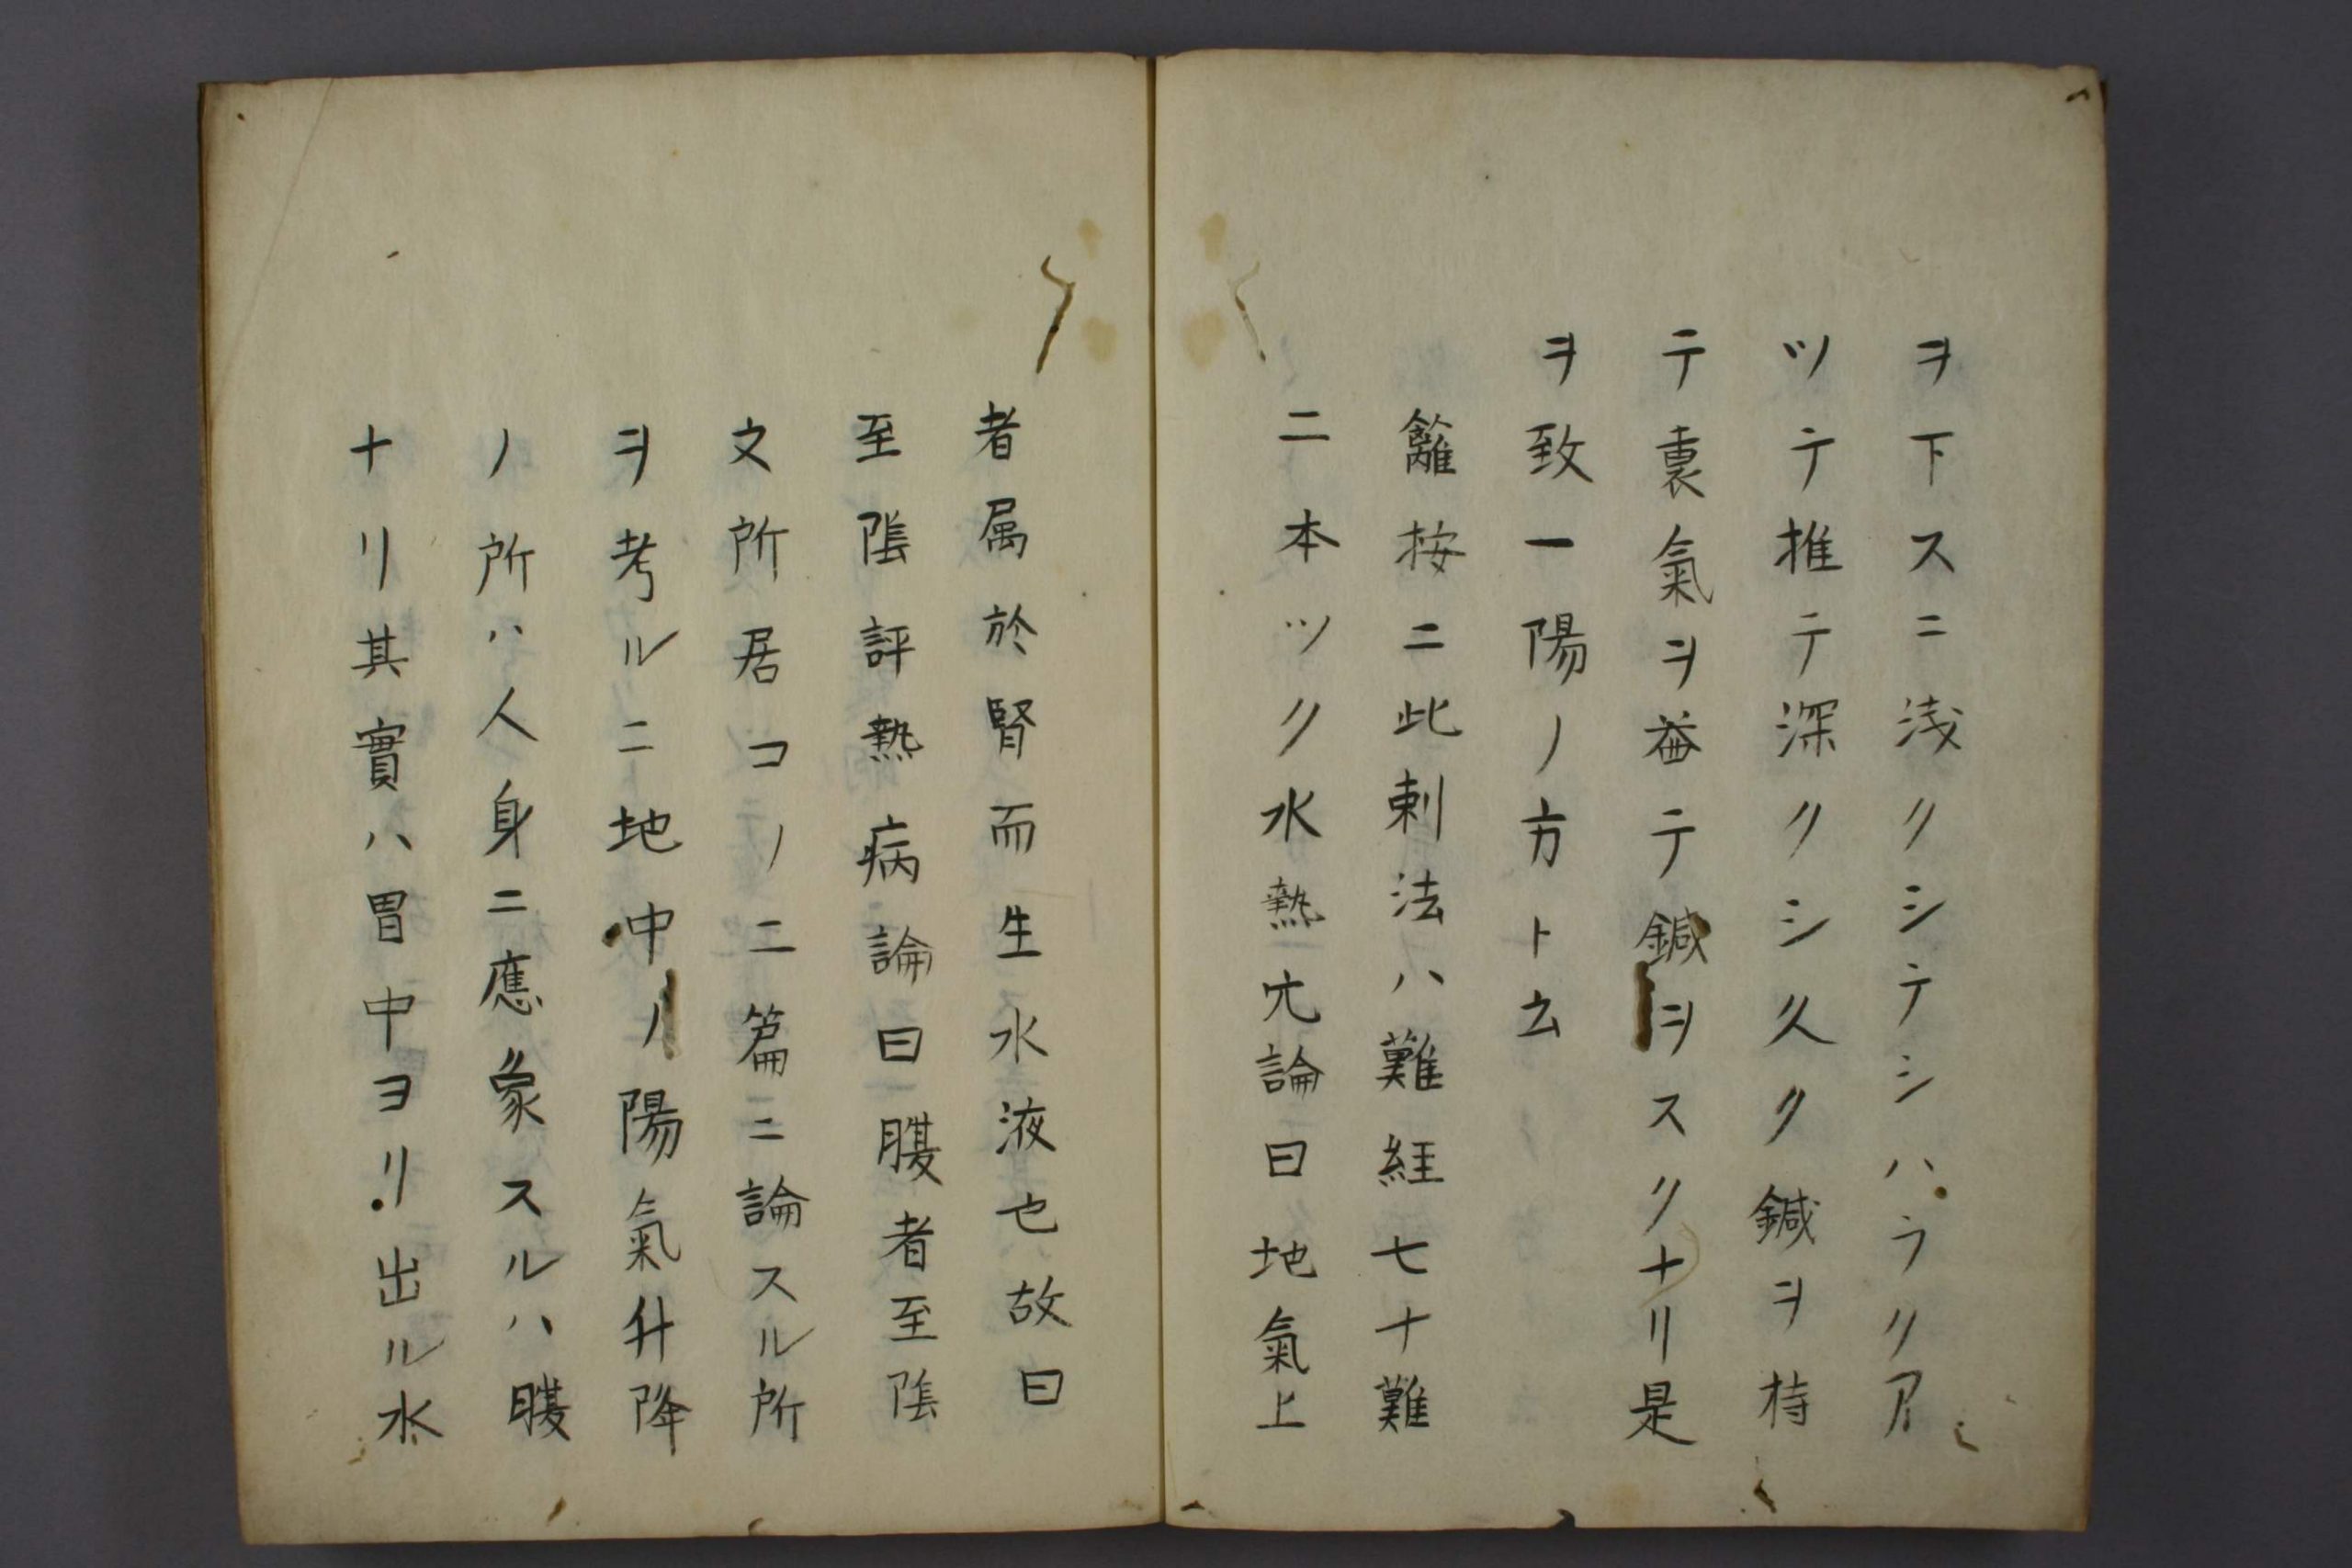 ヲ下スニ浅クシテシハラクア
ツテ推テ深クシ久ク鍼ヲ持
テ裏氣ヲ益テ鍼ヲスクナリ是
ヲ致一陽ノ方ト云
籬按ニ此刺法ハ難経七十難
ニ本ツク水熱穴論曰地氣上
者属於腎而生水液也故曰
至陰評熱病論曰腰者至陰
文所居コノ二篇ニ論スル所
ヲ考ルニ地中ノ陽氣升降
ノ所ハ人身ニ應象スルハ腰
ナリ其實ハ胃中ヨリ出ル水